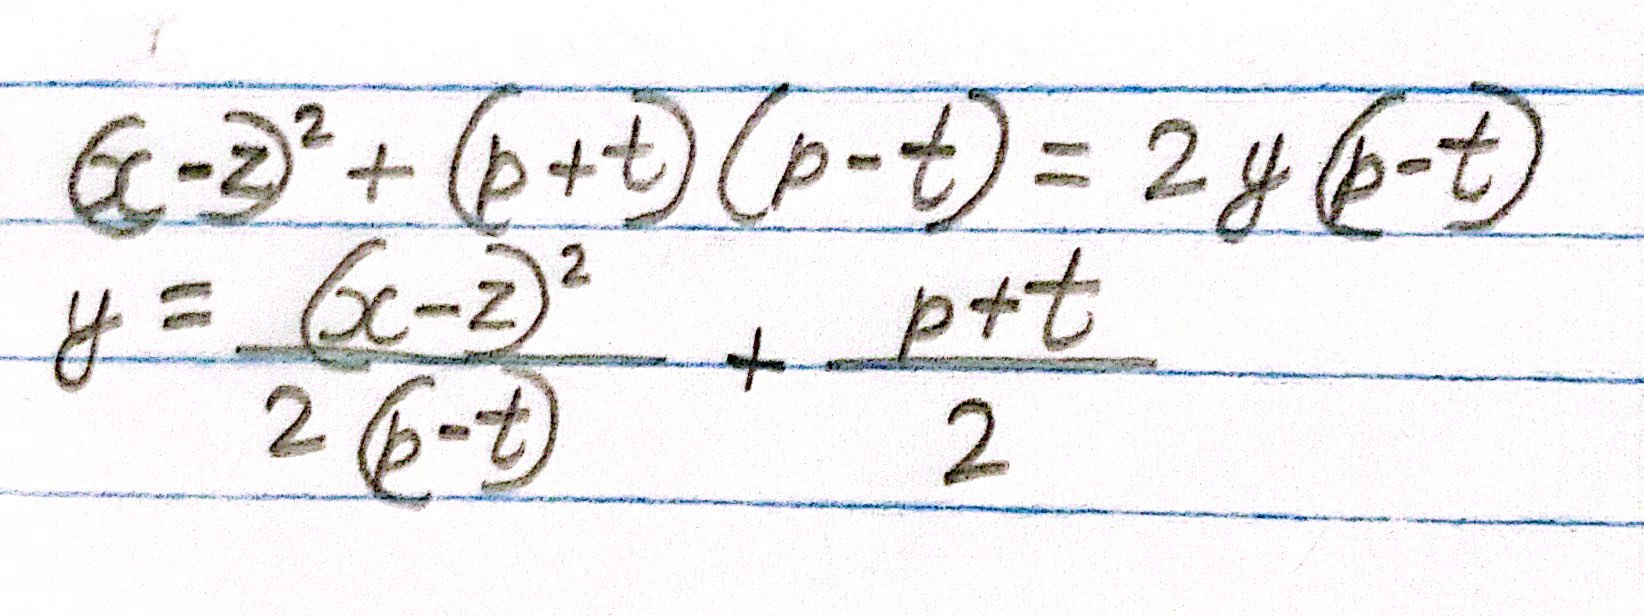 (x-z)² + (p+t)(p-t) = 2y(p-t)
y = (x-z)² / 2(p-t) + p+t / 2